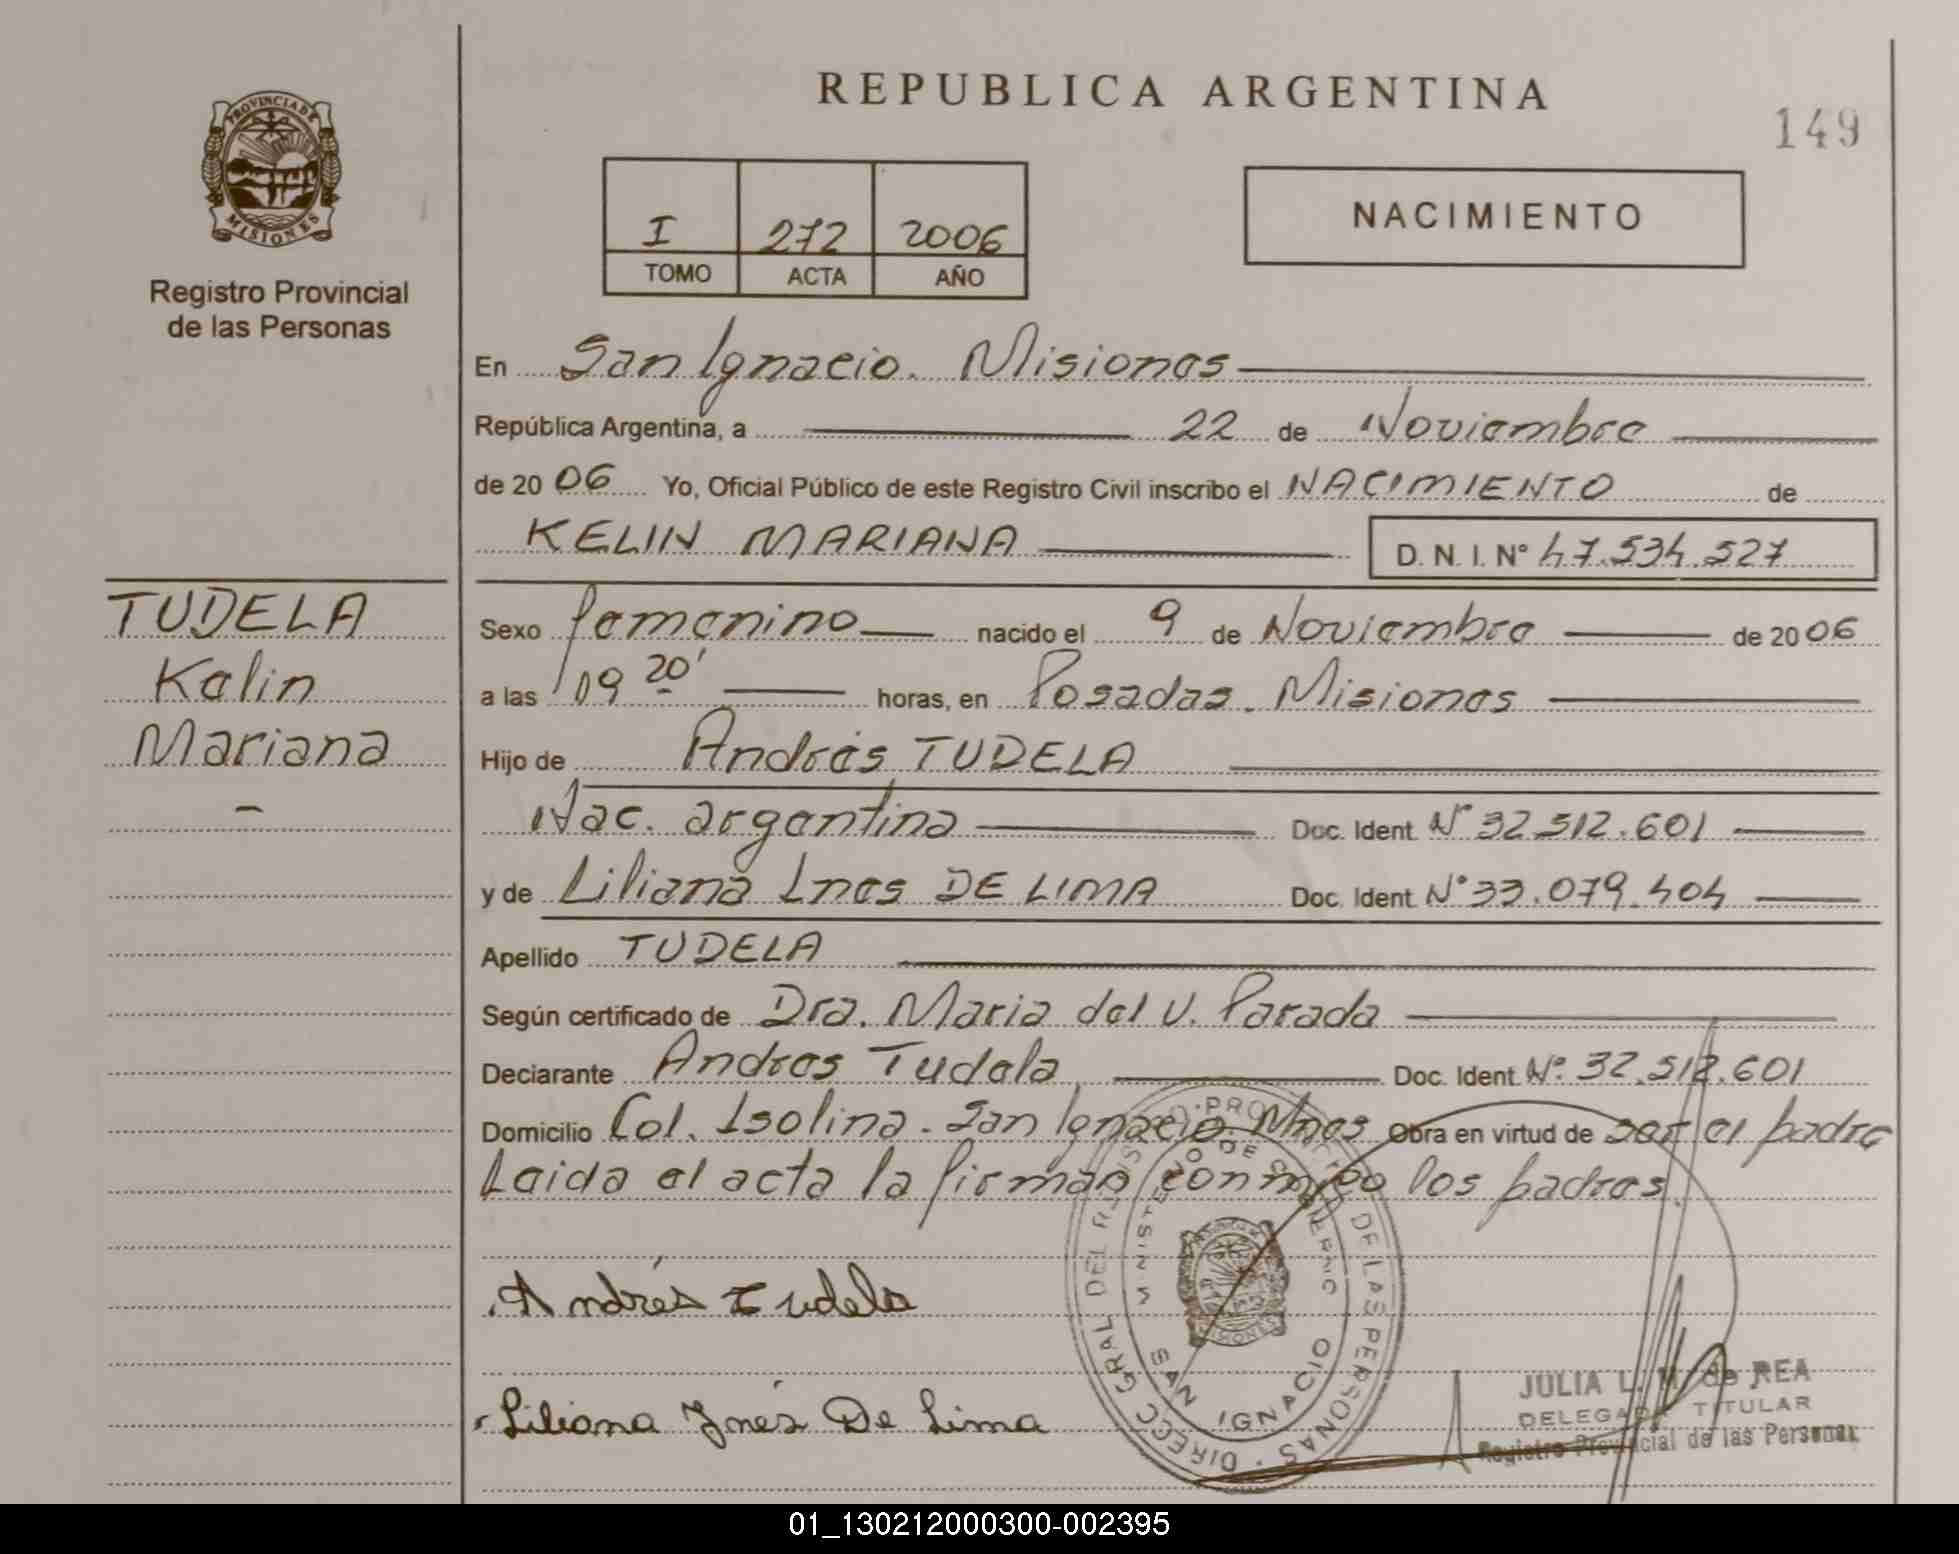 REPUBLICA ARGENTINA
149
PROVINCIA DE
MISIONES
Registro Provincial
de las Personas
I 272 2006
TOMO ACTA AÑO
NACIMIENTO
En San Ignacio. Misiones
República Argentina, a 22 de Noviembre
de 20 06 Yo, Oficial Público de este Registro Civil inscribo el NACIMIENTO de
KELIN MARIANA D. N. I. N° 47.534.527
TUDELA
Kelin
Mariana
Sexo femenino nacido el 9 de Noviembre de 20 06
a las 09 20' horas, en Posadas. Misiones
Hijo de Andrés TUDELA
Nac. argentina Doc. Ident. N° 32.512.601
y de Liliana Ines DE LIMA Doc. Ident. N° 33.079.404
Apellido TUDELA
Según certificado de Dra. Maria del V. Parada
Declarante Andres Tudela Doc. Ident. N° 32.512.601
Domicilio Col. Isolina. San Ignacio Mnes Obra en virtud de ser el padre
Leida el acta la firman conmigo los padres.
Andrés Tudela
Liliana Inés De Lima
DIRECC GRAL DEL REGISTRO PROVINCIAL DE LAS PERSONAS
MINISTERIO DE GOBIERNO
SAN IGNACIO
MISIONES
JULIA L. M. de REA
DELEGADA TITULAR
Registro Provincial de las Personas
01_130212000300-002395